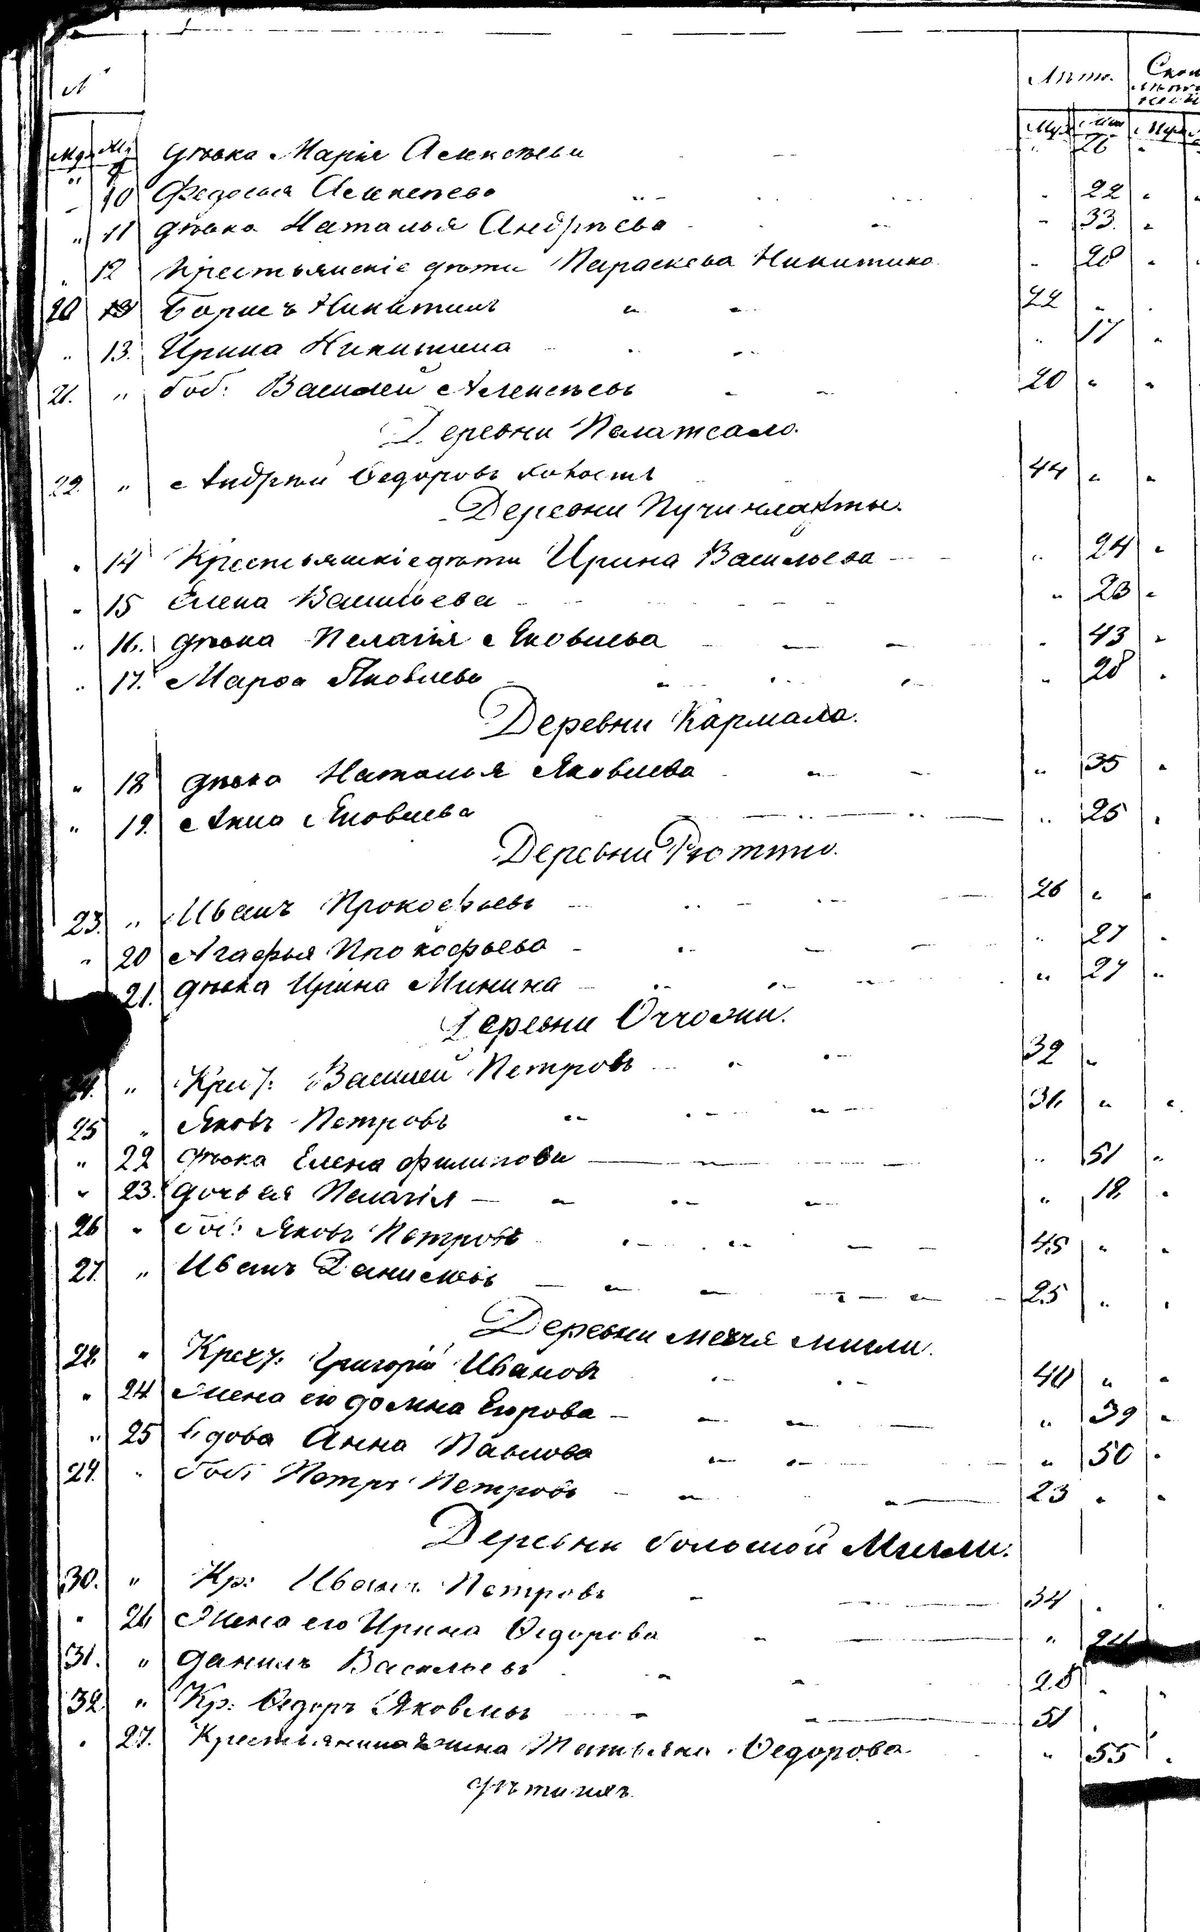 № Лѣта.
Муж. Муж.
" 9 дѣвка Марія Алексѣева " 26 "
" 10 Федосья Алексѣева " 22 "
" 11 дѣвка Наталья Андрѣева " 33. "
" 12 Крестьянскіе дѣти Параскева Никитина " 28 "
20 Борисъ Никитинъ 22 "
" 13. Ирина Никитина " 17 "
21. " боб: Василей Алексѣевъ 20 " "
Деревни
22. " Андрей Ѳедоровъ 44 " "
Деревни
" 14 Крестьянскіе дѣти Ирина Васильева " 24 "
" 15 Елена Васильева " 23 "
" 16. дѣвка Пелагія Яковлева " 43 "
" 17. Марѳа Яковлева " 28 "
Деревни Кармала.
" 18 дѣвка Наталья Яковлева " 35 "
" 19. Анна Яковлева " 25 "
Деревни
23. " Иванъ Прокофьевъ 26 " "
" 20 Агафья Прокофьева " 27 "
21. дѣвка Ирина Минина " 27 "
Деревни
" Василей Петровъ 32 "
25 " Яковъ Петровъ 31 " "
" 22 дѣвка Елена Филипова " 51 "
" 23. дочь ея Пелагія " 18 "
26 " боб: Яковъ Петровъ 45 " "
27. " Иванъ Даниловъ 25 " "
Деревни
28. " Григорій Ивановъ 40 " "
" 24 Жена его Домна Егорова " 39 "
" 25 Вдова Анна Павлова " 50 "
29. " боб: Петръ Петровъ 23 " "
Деревни большой Мигли.
30. " Кр: Иванъ Петровъ 34 "
" 26 Жена его Ирина Ѳедорова "
31. " Данилъ Васильевъ 28 "
32. " Кр: Ѳедоръ Яковлевъ 51
" 27. Татьяна Ѳедорова " 55